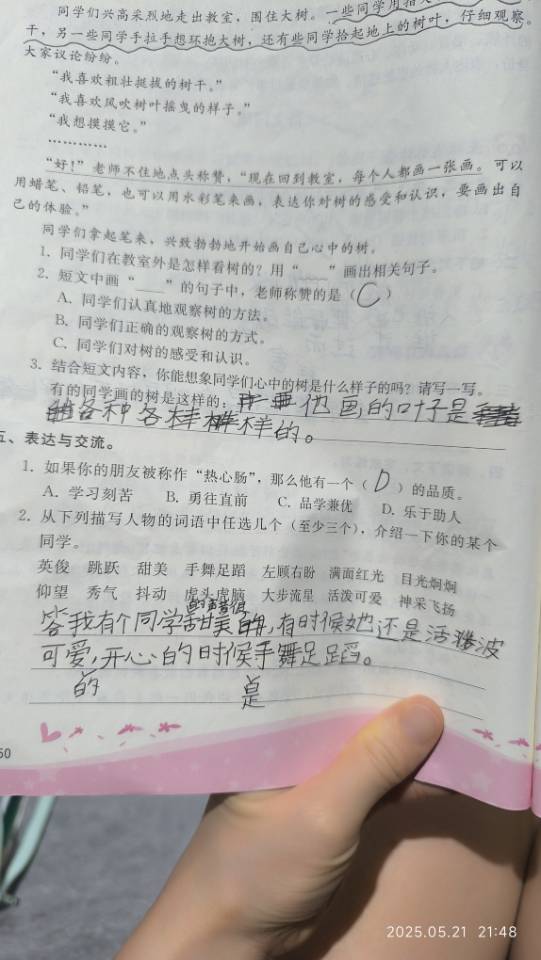 同学们兴高采烈地走出教室，围住大树。一些同学用指
干，另一些同学手拉手想环抱大树，还有些同学拾起地上的树叶，仔细观察。
大家议论纷纷。
“我喜欢粗壮挺拔的树干。”
“我喜欢风吹树叶摇曳的样子。”
“我想摸摸它。”
…………
“好！”老师不住地点头称赞，“现在回到教室，每个人都画一张画。可以
用蜡笔、铅笔，也可以用水彩笔来画，表达你对树的感受和认识，要画出自
己的体验。”
同学们拿起笔来，兴致勃勃地开始画自己心中的树。
1. 同学们在教室外是怎样看树的？用“____”画出相关句子。
2. 短文中画“____”的句子中，老师称赞的是（C）
A. 同学们认真地观察树的方法。
B. 同学们正确的观察树的方式。
C. 同学们对树的感受和认识。
3. 结合短文内容，你能想象同学们心中的树是什么样子的吗？请写一写。
有的同学画的树是这样的：他画的叶子是
各种各样的。
五、表达与交流。
1. 如果你的朋友被称作“热心肠”，那么他有一个（D）的品质。
A. 学习刻苦 B. 勇往直前 C. 品学兼优 D. 乐于助人
2. 从下列描写人物的词语中任选几个（至少三个），介绍一下你的某个
同学。
英俊 跳跃 甜美 手舞足蹈 左顾右盼 满面红光 目光炯炯
仰望 秀气 抖动 虎头虎脑 大步流星 活泼可爱 神采飞扬
答我有个同学甜美的，有时候她还是活泼
可爱，开心的时候手舞足蹈。
的 是
60
2025.05.21 21:48